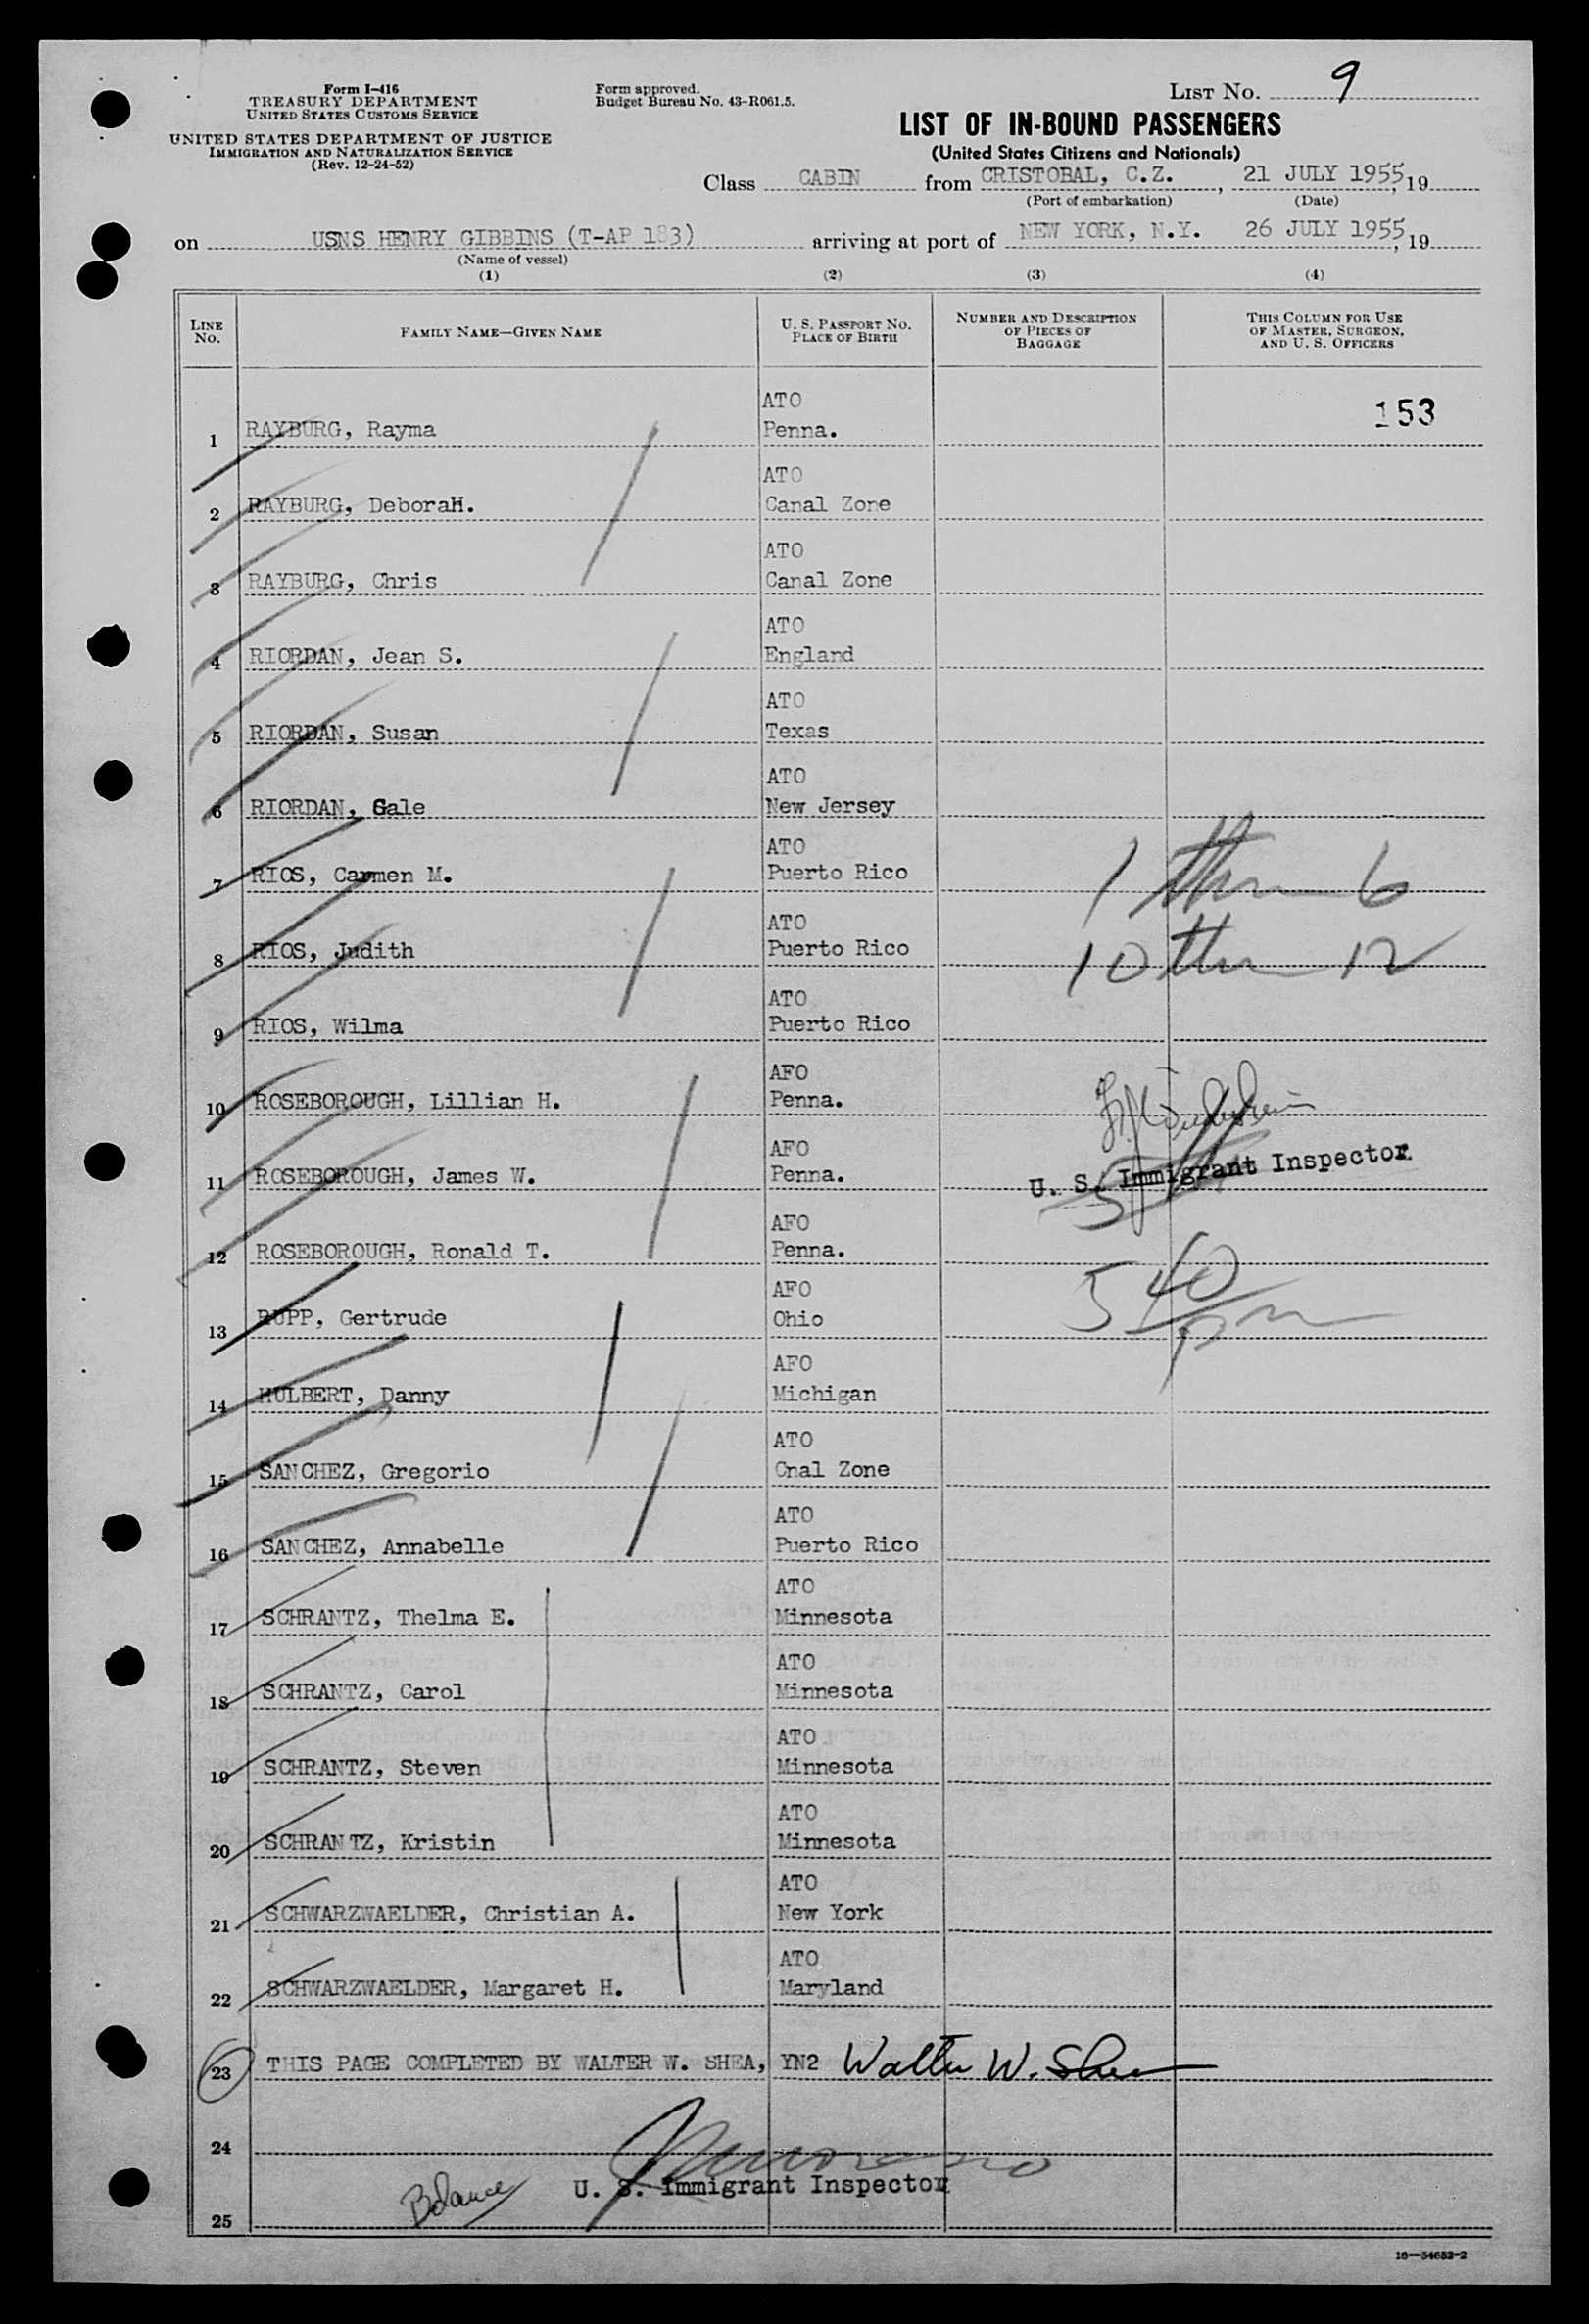 Form I-416
TREASURY DEPARTMENT
UNITED STATES CUSTOMS SERVICE
UNITED STATES DEPARTMENT OF JUSTICE
IMMIGRATION AND NATURALIZATION SERVICE
(Rev. 12-24-52)
Form approved.
Budget Bureau No. 43-R061.5.
LIST No. 9
LIST OF IN-BOUND PASSENGERS
(United States Citizens and Nationals)
Class CABIN from CRISTOBAL, C.Z., 21 JULY 1955, 19
(Port of embarkation) (Date)
on USNS HENRY GIBBINS (T-AP 183) arriving at port of NEW YORK, N.Y. 26 JULY 1955, 19
(Name of vessel)
(1) (2) (3) (4)
LINE No. FAMILY NAME—GIVEN NAME U. S. PASSPORT No. PLACE OF BIRTH NUMBER AND DESCRIPTION OF PIECES OF BAGGAGE THIS COLUMN FOR USE OF MASTER, SURGEON, AND U. S. OFFICERS
ATO 153
1 RAYBURG, Rayma Penna.
ATO
2 RAYBURG, DeboraH. Canal Zone
ATO
3 RAYBURG, Chris Canal Zone
ATO
4 RIORDAN, Jean S. England
ATO
5 RIORDAN, Susan Texas
ATO
6 RIORDAN, Gale New Jersey
ATO
7 RIOS, Carmen M. Puerto Rico 1 thru 6
ATO
8 RIOS, Judith Puerto Rico 10 thru 12
ATO
9 RIOS, Wilma Puerto Rico
AFO
10 ROSEBOROUGH, Lillian H. Penna.
AFO
11 ROSEBOROUGH, James W. Penna. U. S. Immigrant Inspector
AFO
12 ROSEBOROUGH, Ronald T. Penna.
AFO 5 40 pm
13 RUPP, Gertrude Ohio
AFO
14 HULBERT, Danny Michigan
ATO
15 SANCHEZ, Gregorio Cnal Zone
ATO
16 SANCHEZ, Annabelle Puerto Rico
ATO
17 SCHRANTZ, Thelma E. Minnesota
ATO
18 SCHRANTZ, Carol Minnesota
ATO
19 SCHRANTZ, Steven Minnesota
ATO
20 SCHRANTZ, Kristin Minnesota
ATO
21 SCHWARZWAELDER, Christian A. New York
ATO
22 SCHWARZWAELDER, Margaret H. Maryland
23 THIS PAGE COMPLETED BY WALTER W. SHEA, YN2 Walter W. Shea
24
Balance U. S. Immigrant Inspector
25
16—54652-2